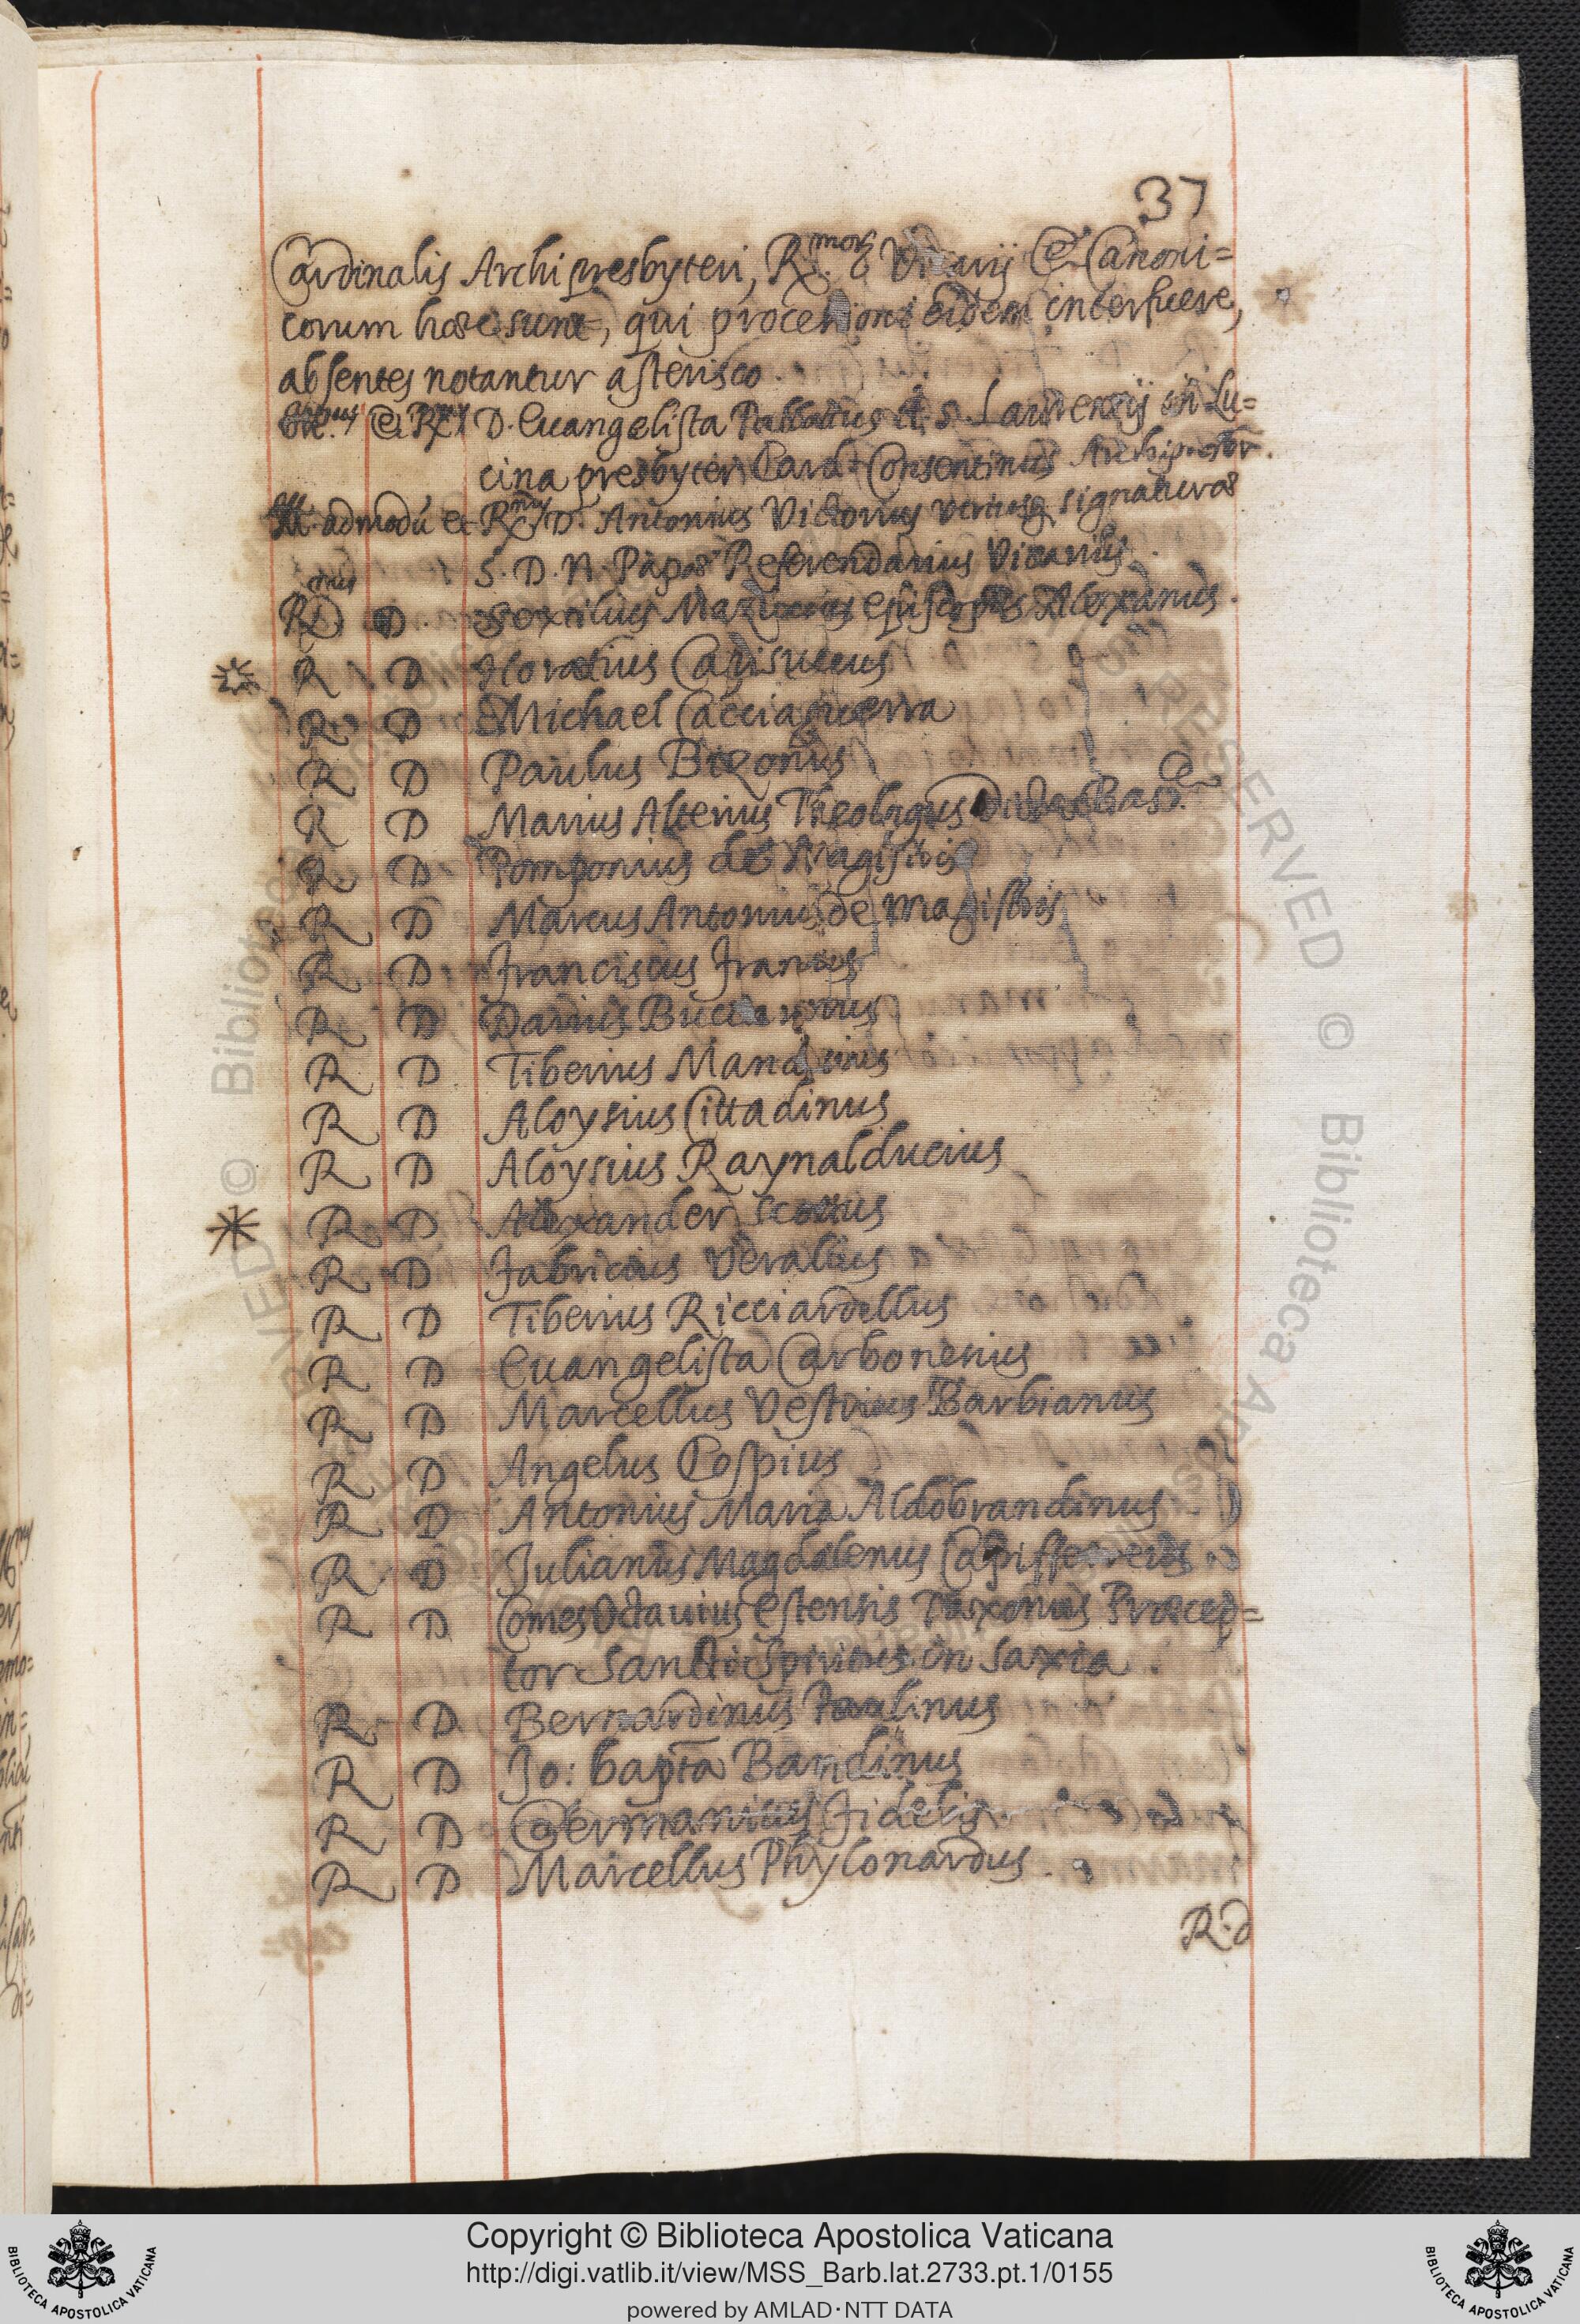 37
Cardinalis Archipresbyteri, R.mor. & Vicarij Et Canoni=
corum haec sunt, qui processioni eidem interfuere,
absentes notantur asterisco.
Et R.mus D. Euangelista Pallottus tt. S. Laurentij in Lu=
cina presbyter Card. Consentinus Archipresbr.
Ill. admodū et R.mus D. Antonius Victorius utriusq signaturae
S. D. N. Papae Referendarius Vicarius.
R.mus D. Sextilius Mazucus episcopus Alexanus.
* R D Horatius
R D Michael Cacciaguerra
R D Paulus Bizonius
R D Marius Alterius Theologus
R D Pomponius de Magistris
R D Marcus Antonius de magistris
R D Franciscus
R D Darius Buccarinus
R D Tiberius
R D Aloysius Cittadinus
R D Aloysius Raynalducius
* R D Alexander
R D Fabricius Verallus
R D Tiberius Ricciardellus
R D Euangelista Carbonesius
R D Marcellus Vestrius Barbianus
R D Angelus Cospius
R D Antonius Maria Aldobrandinus
R D Julianus Magdalenus Capifferreus
R D Comes Octauius Estensis Tassonus Praecep=
tor Sancti Spiritus in Saxia.
R D Bernardinus Paulinus
R D Jo: bapta Bandinus
R D Germanicus Fidelis
R D Marcellus Phylonardus.
R. D
Copyright © Biblioteca Apostolica Vaticana
http://digi.vatlib.it/view/MSS_Barb.lat.2733.pt.1/0155
powered by AMLAD·NTT DATA
BIBLIOTECA APOSTOLICA VATICANA
BIBLIOTECA APOSTOLICA VATICANA